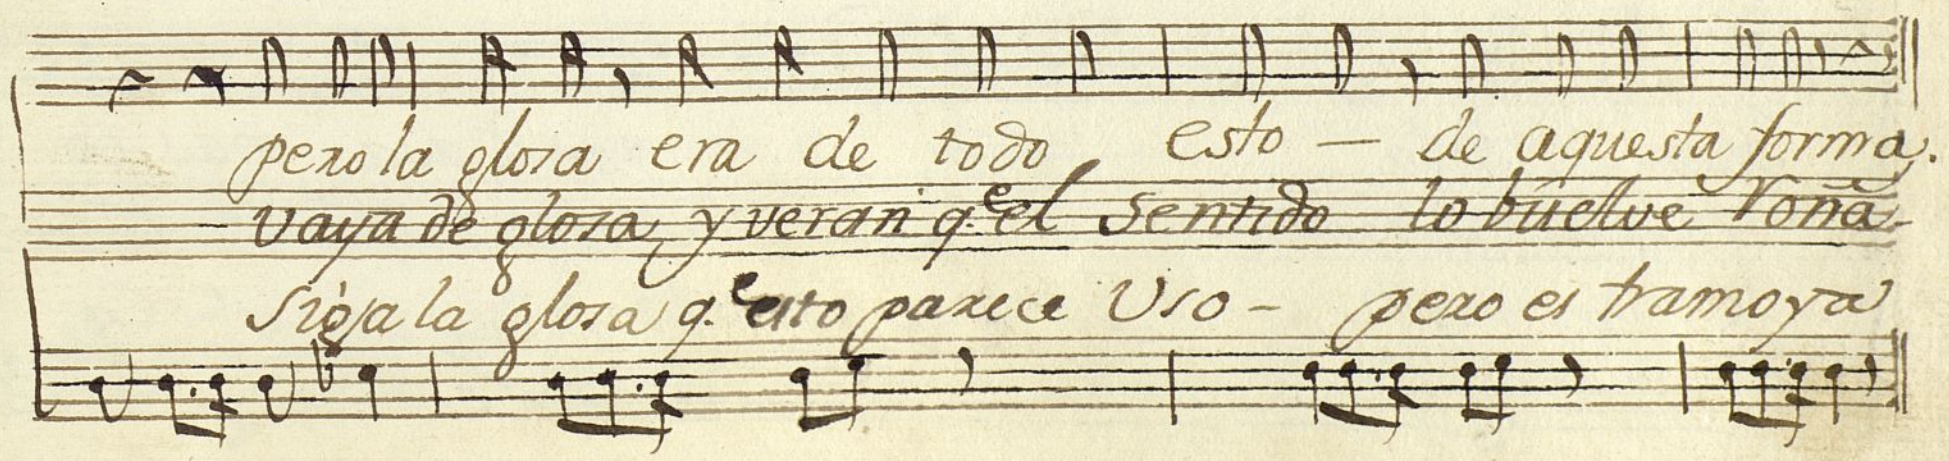 pero la glosa era de todo esto — de aquesta forma.
vaya de glosa, y veran q.e el sentido lo buelve roña
siga la glosa q.e esto parece uso - pero es tramoya